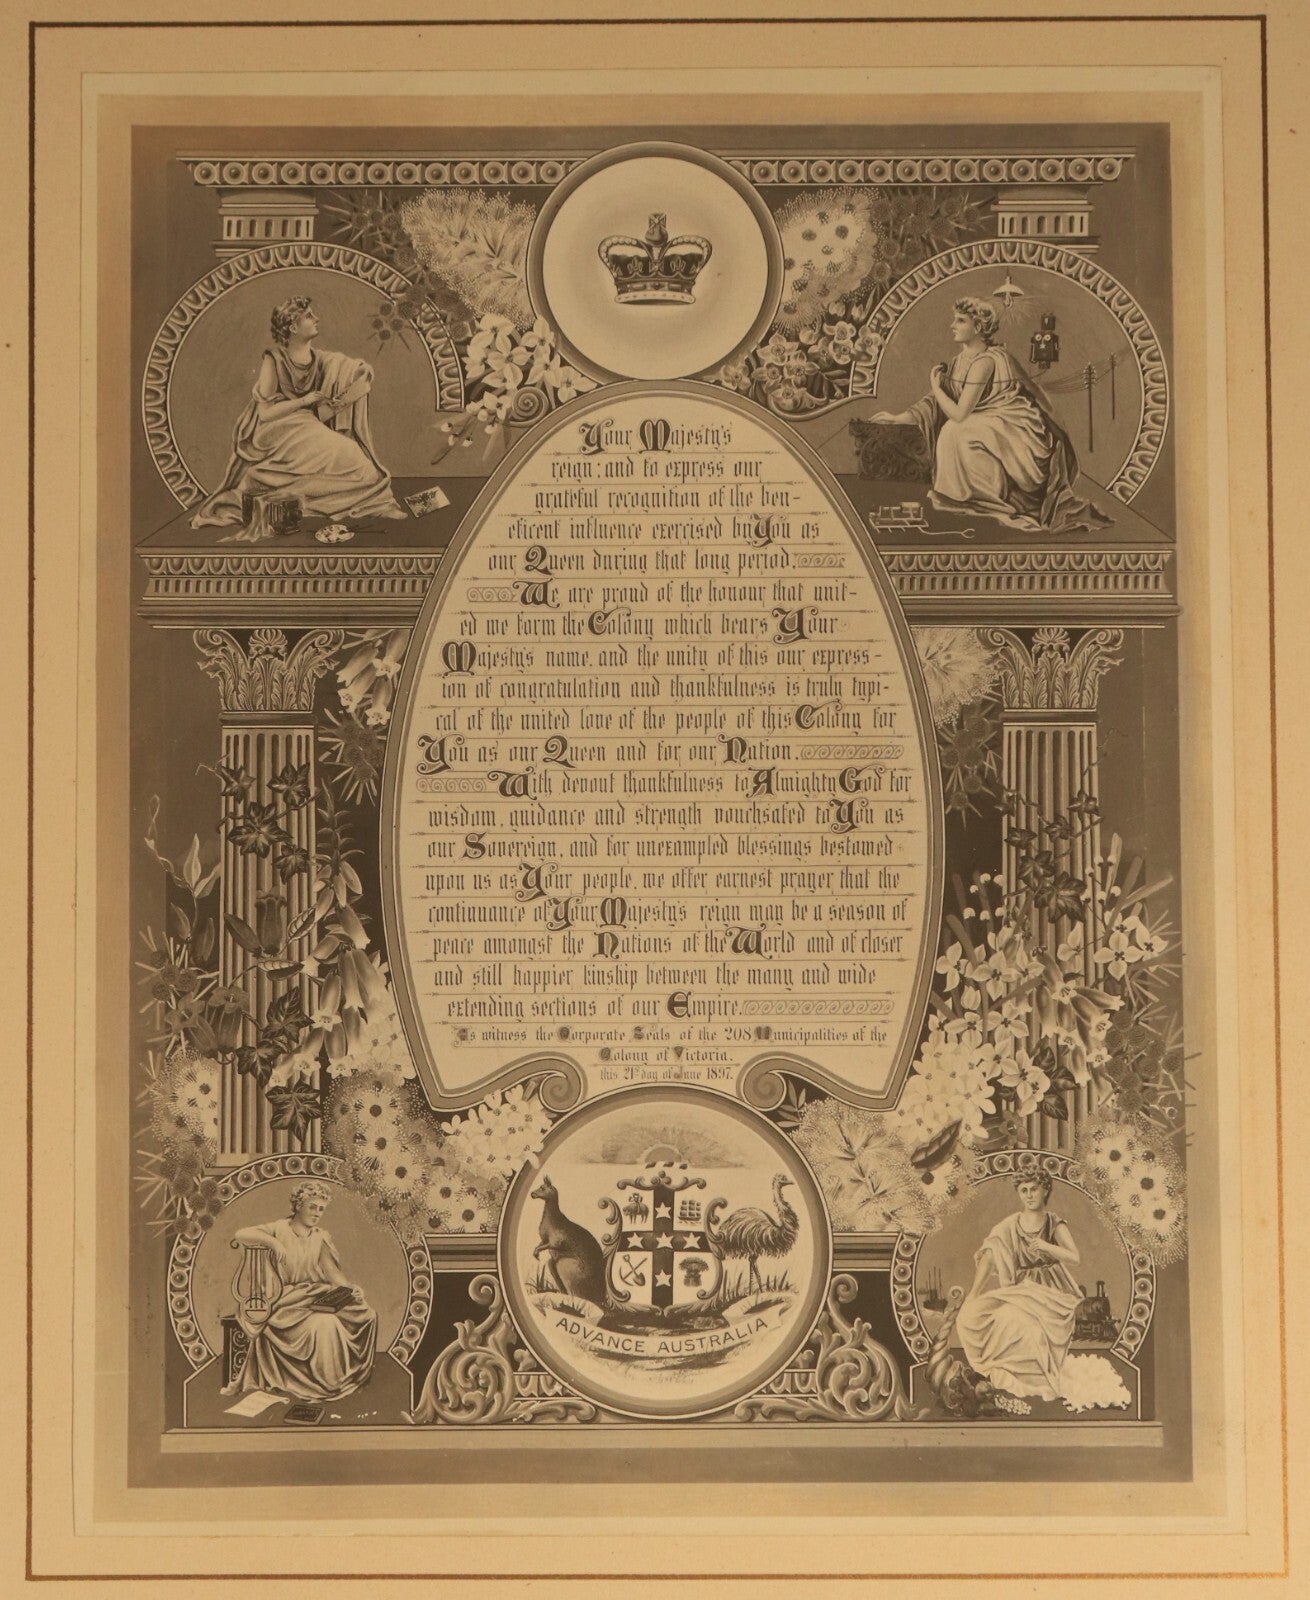 Your Majesty's
reign; and to express our
grateful recognition of the ben-
eficent influence exercised by You as
our Queen during that long period.
We are proud of the honour that unit-
ed we form the Colony which bears Your
Majesty's name, and the unity of this our express-
ion of congratulation and thankfulness is truly typi-
cal of the united love of the people of this Colony for
You as our Queen and for our Nation.
With devout thankfulness to Almighty God for
wisdom, guidance and strength vouchsafed to You as
our Sovereign, and for unexampled blessings bestowed
upon us as Your people, we offer earnest prayer that the
continuance of Your Majesty's reign may be a season of
peace amongst the Nations of the World and of closer
and still happier kinship between the many and wide
extending sections of our Empire.
As witness the Corporate Seals of the 208 Municipalities of the
Colony of Victoria.
this 21st day of June 1897.
ADVANCE AUSTRALIA